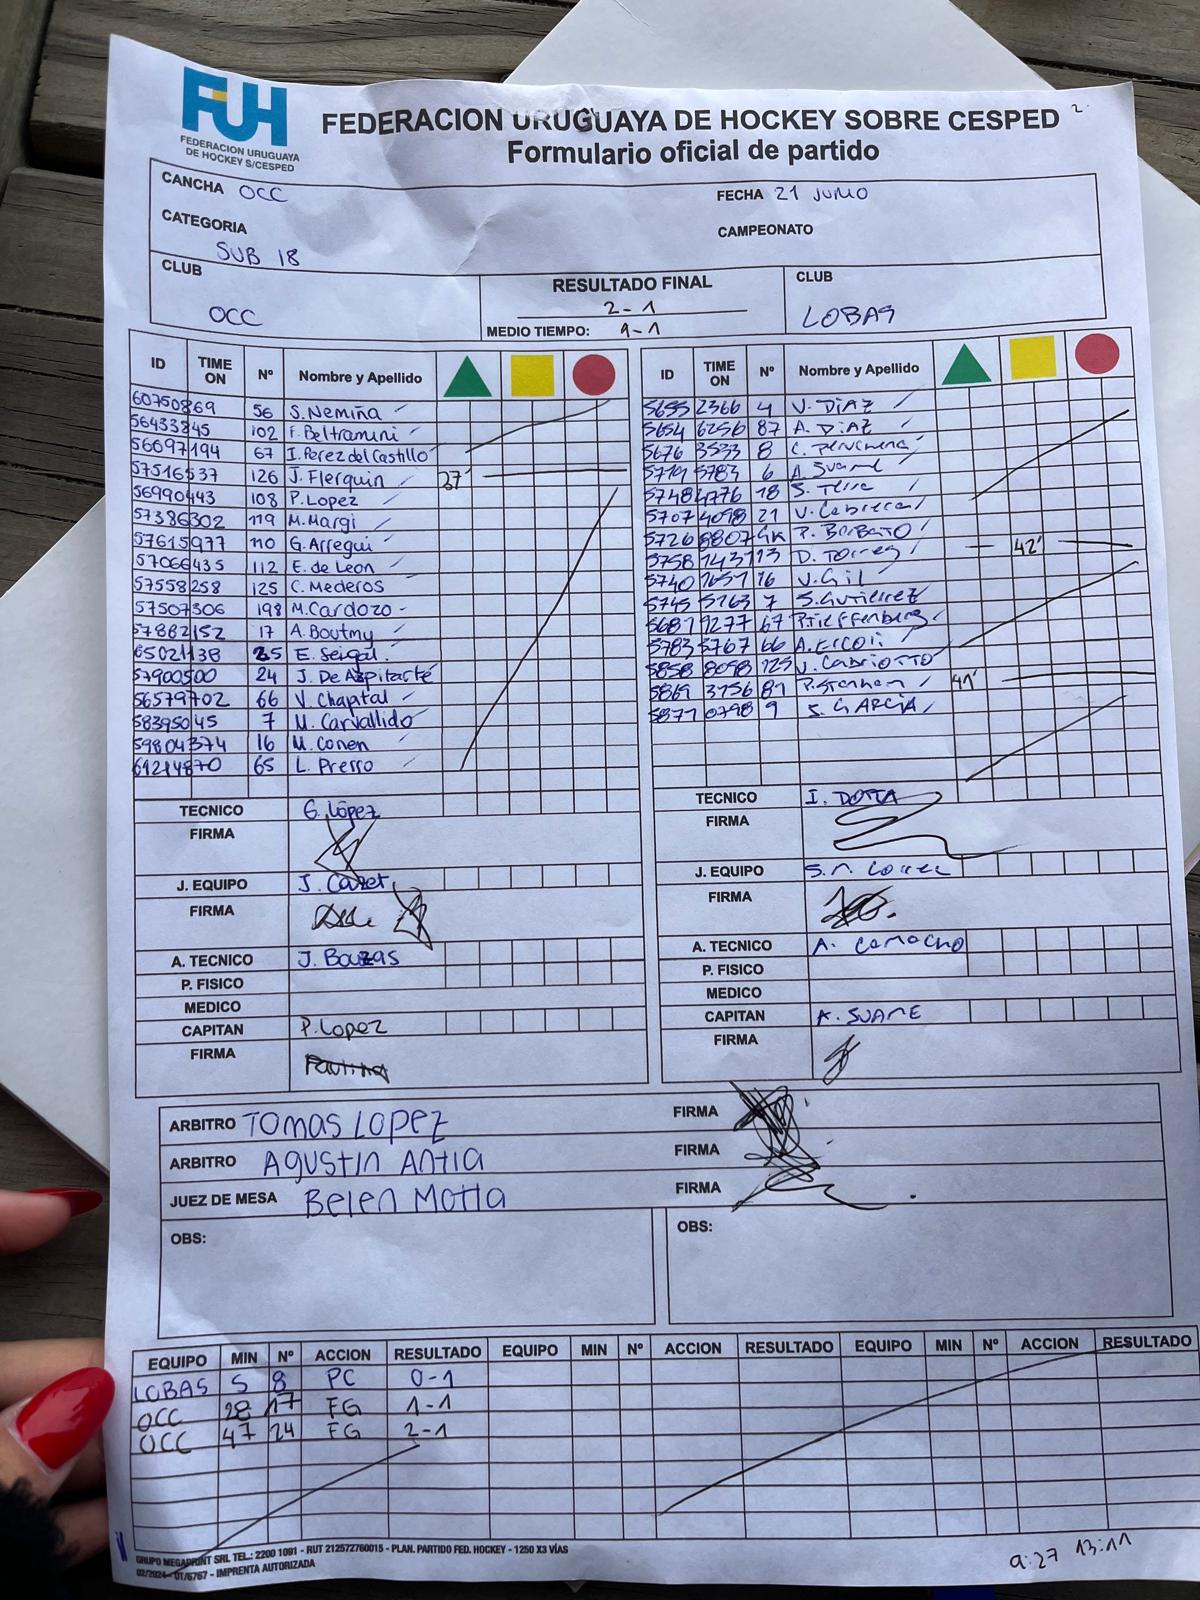 FUH
FEDERACION URUGUAYA
DE HOCKEY S/CESPED
FEDERACION URUGUAYA DE HOCKEY SOBRE CESPED
Formulario oficial de partido
CANCHA OCC FECHA 21 JUNIO
CATEGORIA SUB 18 CAMPEONATO
CLUB OCC RESULTADO FINAL 2-1 CLUB LOBAS
MEDIO TIEMPO: 1-1
ID TIME ON Nº Nombre y Apellido
60750869 56 S. Nemiña
56433845 102 F. Beltramini
56697194 67 I. Perez del Castillo
57516537 126 J. Flerquin 27'
56990443 108 P. Lopez
57386302 119 M. Margi
57615977 110 G. Arregui
57066435 112 E. de Leon
57558258 125 C. Mederos
57507306 198 M. Cardozo
57882152 17 A. Boutmy
65021138 25 E. Seigal
57900500 24 J. De Azpitarte
56579702 66 V. Chaptal
58395045 7 M. Carvallido
59804374 16 M. Conen
61214870 65 L. Presso
TECNICO G. López
FIRMA
J. EQUIPO J. Cazet
FIRMA
A. TECNICO J. Bouzas
P. FISICO
MEDICO
CAPITAN P. Lopez
FIRMA Paulina
ID TIME ON Nº Nombre y Apellido
5655 2366 4 V. DIAZ
5654 6256 87 A. DIAZ
5676 3533 8 C.
5719 5783 6 A. Suarne
5748 4776 18 S. Terra
5707 4098 21 V. Cabrera
5726 8807 GK P. Borbato
5758 1437 13 D. Torres 42'
5740 1651 16 V. Gil
5745 5763 7 S. Gutierrez
5681 9277 67 P. Tieffenberg
5783 5767 66 A. Ercoli
5858 8098 125 J. Cabriotto
5869 3156 81 P. Granham 41'
5871 0798 9 S. GARCIA
TECNICO I. DOTTA
FIRMA
J. EQUIPO S. M. Correa
FIRMA
A. TECNICO A. Camacho
P. FISICO
MEDICO
CAPITAN A. SUARNE
FIRMA
ARBITRO TOMAS LOPEZ FIRMA
ARBITRO AGUSTIN ANTIA FIRMA
JUEZ DE MESA Belen Motta FIRMA
OBS: OBS:
EQUIPO MIN Nº ACCION RESULTADO EQUIPO MIN Nº ACCION RESULTADO EQUIPO MIN Nº ACCION RESULTADO
LOBAS 5 8 PC 0-1
OCC 28 17 FG 1-1
OCC 47 24 FG 2-1
GRUPO MEGAPRINT SRL TEL.: 2200 1091 - RUT 212572760015 - PLAN. PARTIDO FED. HOCKEY - 1250 X3 VÍAS
02/2024 - 01/6767 - IMPRENTA AUTORIZADA
9:27 13:11